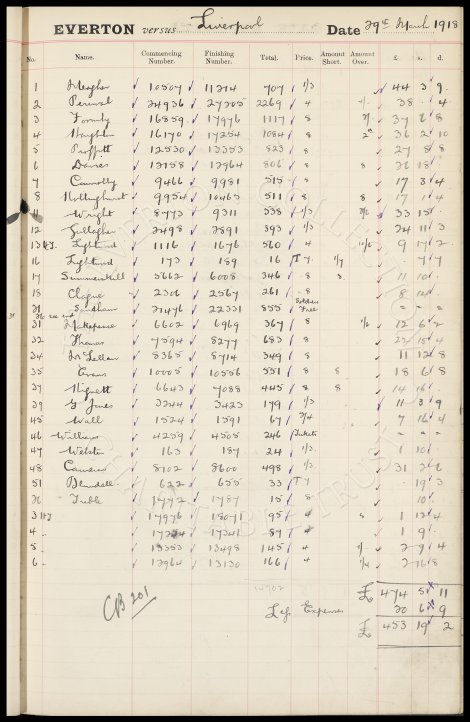 EVERTON versus Liverpool Date 29th March 1918
No. Name. Commencing Number. Finishing Number. Total. Price. Amount Short. Amount Over. £ s. d.
1 Meagher 10507 11214 707 1/3 44 3 9
2 Percival 24936 27205 2269 4 38 4
3 Formby 16859 17976 1117 8 37 6 8
4 Houghton 16170 17254 1084 8 36 2 10
5 Proffitt 12530 13353 823 8 27 8 8
6 Davies 12158 12964 806 8 26 18
7 Connolly 9466 9981 515 8 17 3 4
8 Hollinghurst 9954 10465 511 8 8 17 1 4
11 Wright 8773 9311 538 1/3 33 15
12 Gallagher 2498 2891 393 1/3 24 11 3
13 Hf Lightund 1116 1676 560 4 9 17 2
16 Lightund 173 189 16 1/7 7 7
17 Summerhill 5662 6008 346 8 8 11 10
18 Clague 2306 2567 261 8 8 14
21 Sandham 21476 22331 855 Soldiers Free " " "
31 Makepeace 6602 6969 367 8 12 6 2
32 Thomas 7594 8277 683 8 22 15 4
34 McLellan 8365 8714 349 8 11 12 8
35 Evans 10005 10556 551 8 8 18 6 8
37 Hignett 6643 7088 445 8 8 14 16
39 G Jones 3244 3423 179 1/3 11 3 9
45 Wall 1524 1591 67 2/4 7 16 4
46 Williams 4259 4505 246 Tickets " " "
47 Webster 163 187 24 1/3 1 10
48 Cameron 8102 8600 498 1/3 31 2 6
51 Blundell 622 655 33 19 3
76 Tubble 1772 1787 15 8 10
3 Hf 17976 18071 95 4 8 1 12 4
4 " 17254 17341 87 4 1 9
5 " 13353 13498 145 4 2 9 4
6 " 12964 13130 166 4 2 16 8
CB 201
£ 474 5 11
Less Expenses 20 6 9
£ 453 19 2